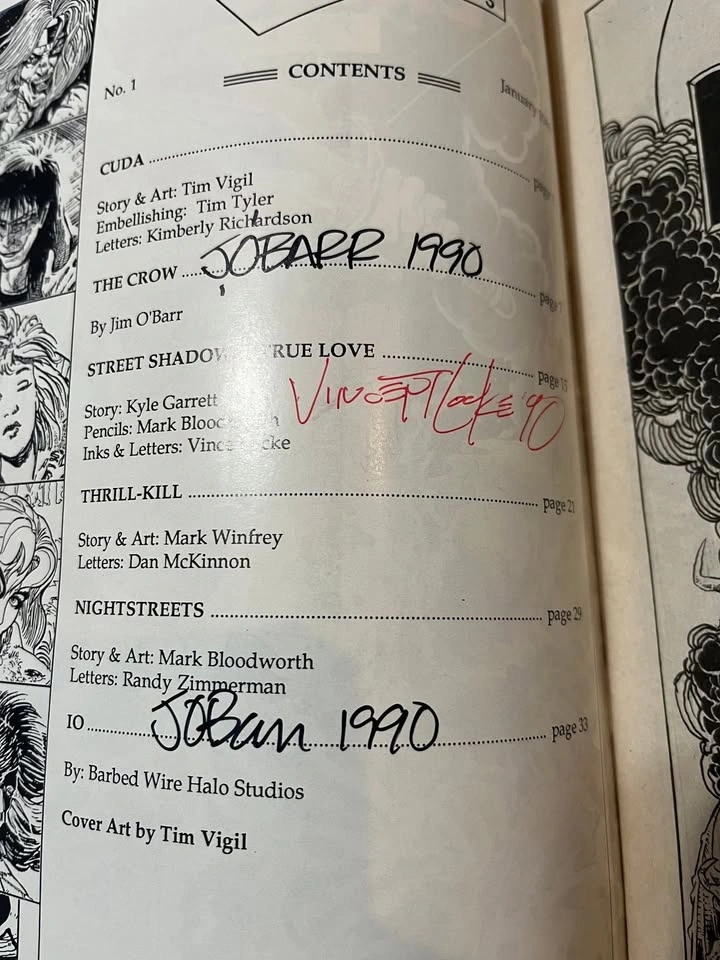 No. 1
CONTENTS
January
CUDA ........ page
Story & Art: Tim Vigil
Embellishing: Tim Tyler
Letters: Kimberly Richardson
JOBARR 1990
THE CROW ........ page 7
By Jim O'Barr
STREET SHADOW TRUE LOVE ........ page 15
Story: Kyle Garrett
VINCENT LOCKE '90
Pencils: Mark Bloo
Inks & Letters: Vince cke
THRILL-KILL ........ page 21
Story & Art: Mark Winfrey
Letters: Dan McKinnon
NIGHTSTREETS ........ page 29
Story & Art: Mark Bloodworth
Letters: Randy Zimmerman
JOBarr 1990
IO ........ page 33
By: Barbed Wire Halo Studios
Cover Art by Tim Vigil